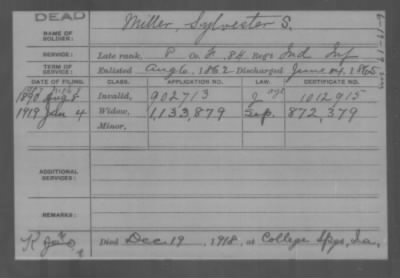 DEAD
NAME OF SOLDIER: Miller, Sylvester S.
SERVICE: Late rank, P Co. F, 84 Reg't Ind Inf
TERM OF SERVICE: Enlisted Aug 6, 1862 Discharged June 14, 1865
DATE OF FILING. CLASS. APPLICATION NO. LAW. CERTIFICATE NO.
1890 Aug 8 Invalid, 902713 J 1012915
1919 Jan 4 Widow, 1,133,879 Sep. 872,379
Minor,
ADDITIONAL SERVICES:
REMARKS:
Died Dec 19, 1918, at College Spgs, Ia,